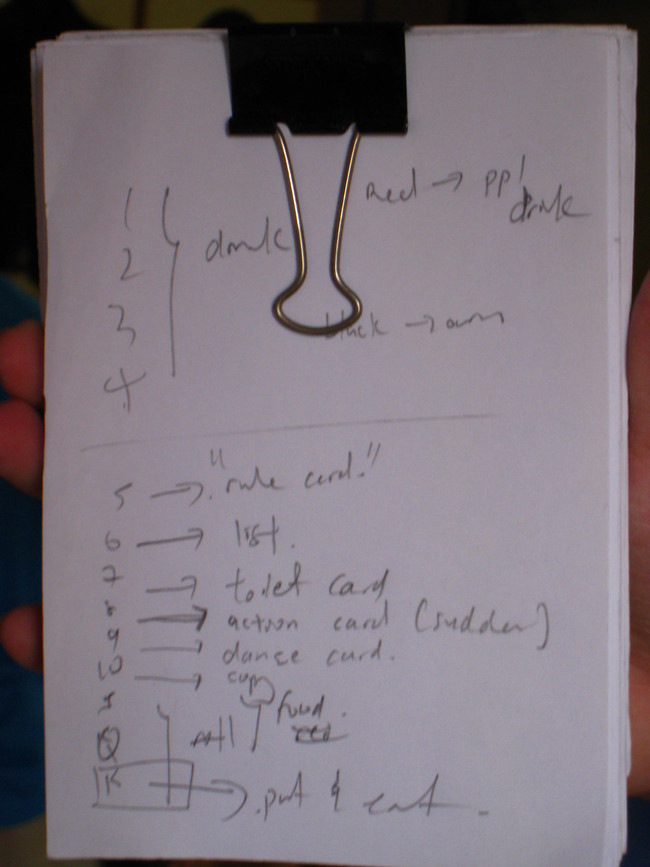 1
red → ppl drink
2 drink
3
black → own
4
5 → "rule card."
6 → list.
7 → toilet card
8 → action card (sudden)
9 → dance card.
10 →
J
food.
Q all
K → put & eat.